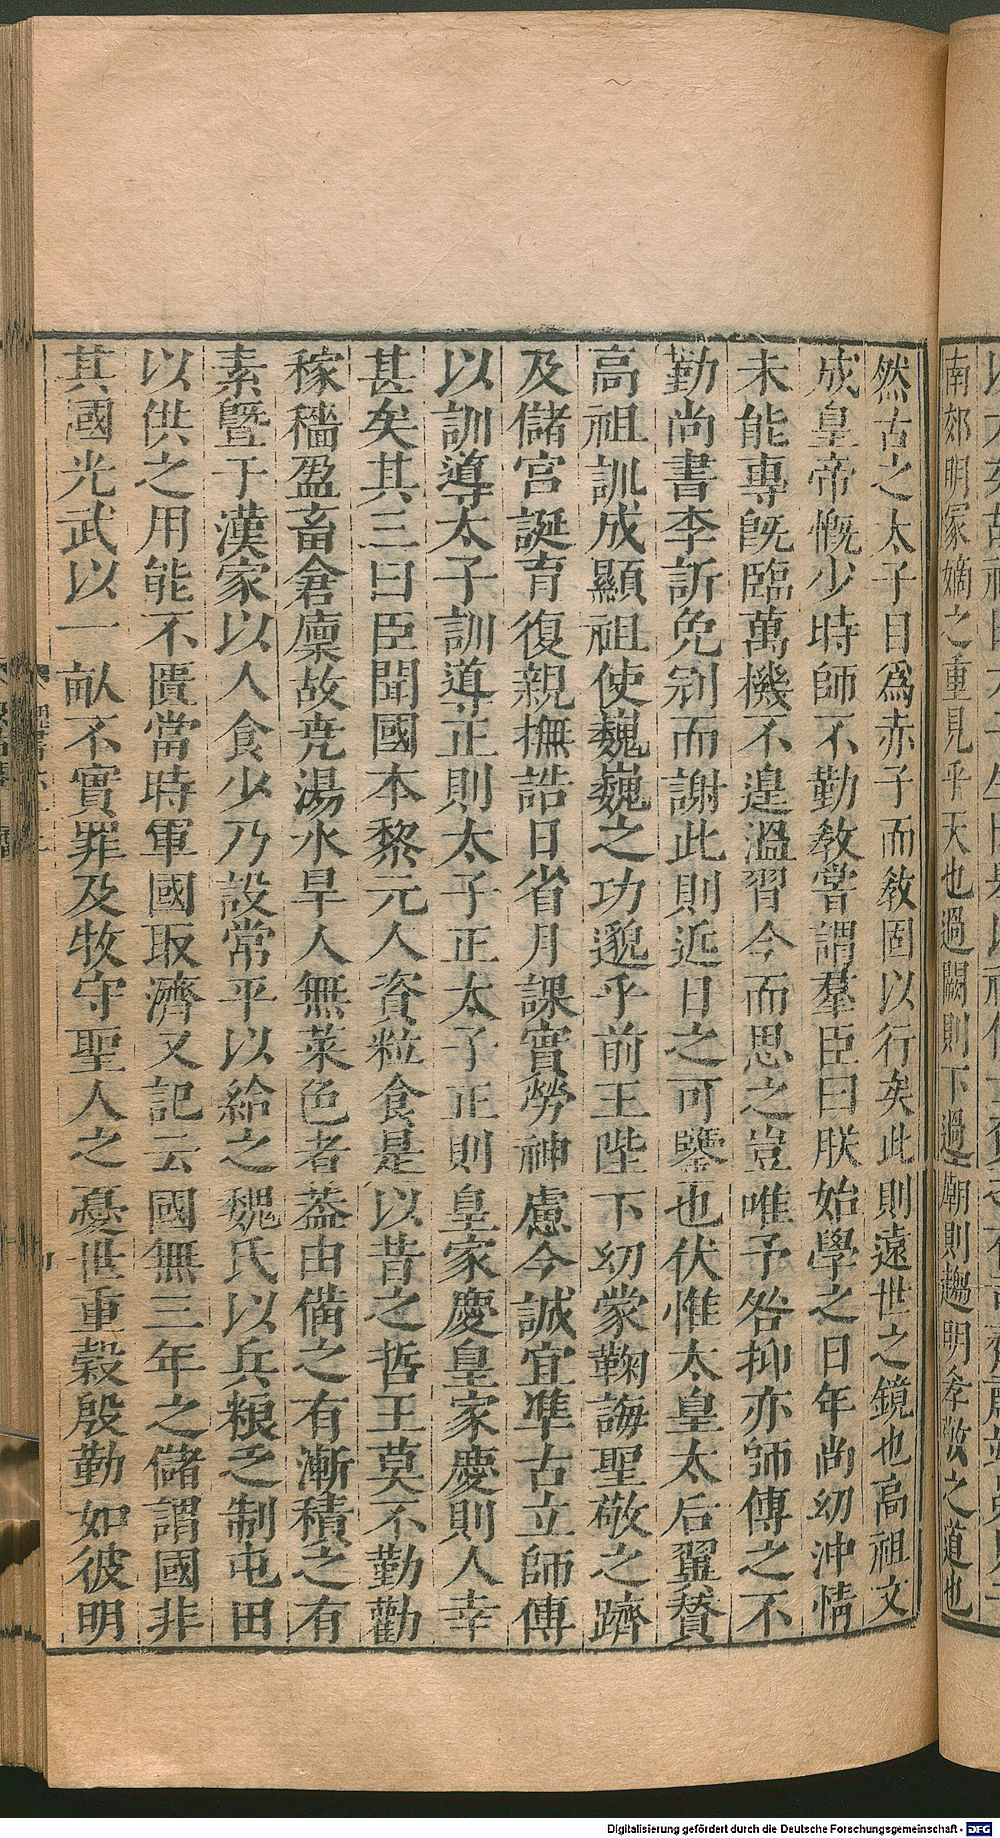 南郊明冢嫡之重見乎天也過闕則下過廟則趨明孝敬之道也
然古之太子自爲赤子而教固以行矣此則遠世之鏡也高祖文
成皇帝慨少時師不勤教嘗謂羣臣曰朕始學之日年尚幼沖情
未能專旣臨萬機不遑溫習今而思之豈唯予咎抑亦師傅之不
勤尚書李訢免冠而謝此則近日之可鑒也伏惟太皇太后翼賛
高祖訓成顯祖使巍巍之功邈乎前王陛下幼蒙鞠誨聖敬之躋
及儲宮誕育復親撫誥日省月課實勞神慮今誠宜準古立師傅
以訓導太子訓導正則太子正太子正則皇家慶皇家慶則人幸
甚矣其三曰臣聞國本黎元人資粒食是以昔之哲王莫不勤勸
稼穡盈畜倉廩故堯湯水旱人無菜色者葢由備之有漸積之有
素曁于漢家以人食少乃設常平以給之魏氏以兵粮乏制屯田
以供之用能不匱當時軍國取濟又記云國無三年之儲謂國非
其國光武以一畝不實罪及牧守聖人之憂世重穀殷勤如彼明
Digitalisierung gefördert durch die Deutsche Forschungsgemeinschaft - DFG